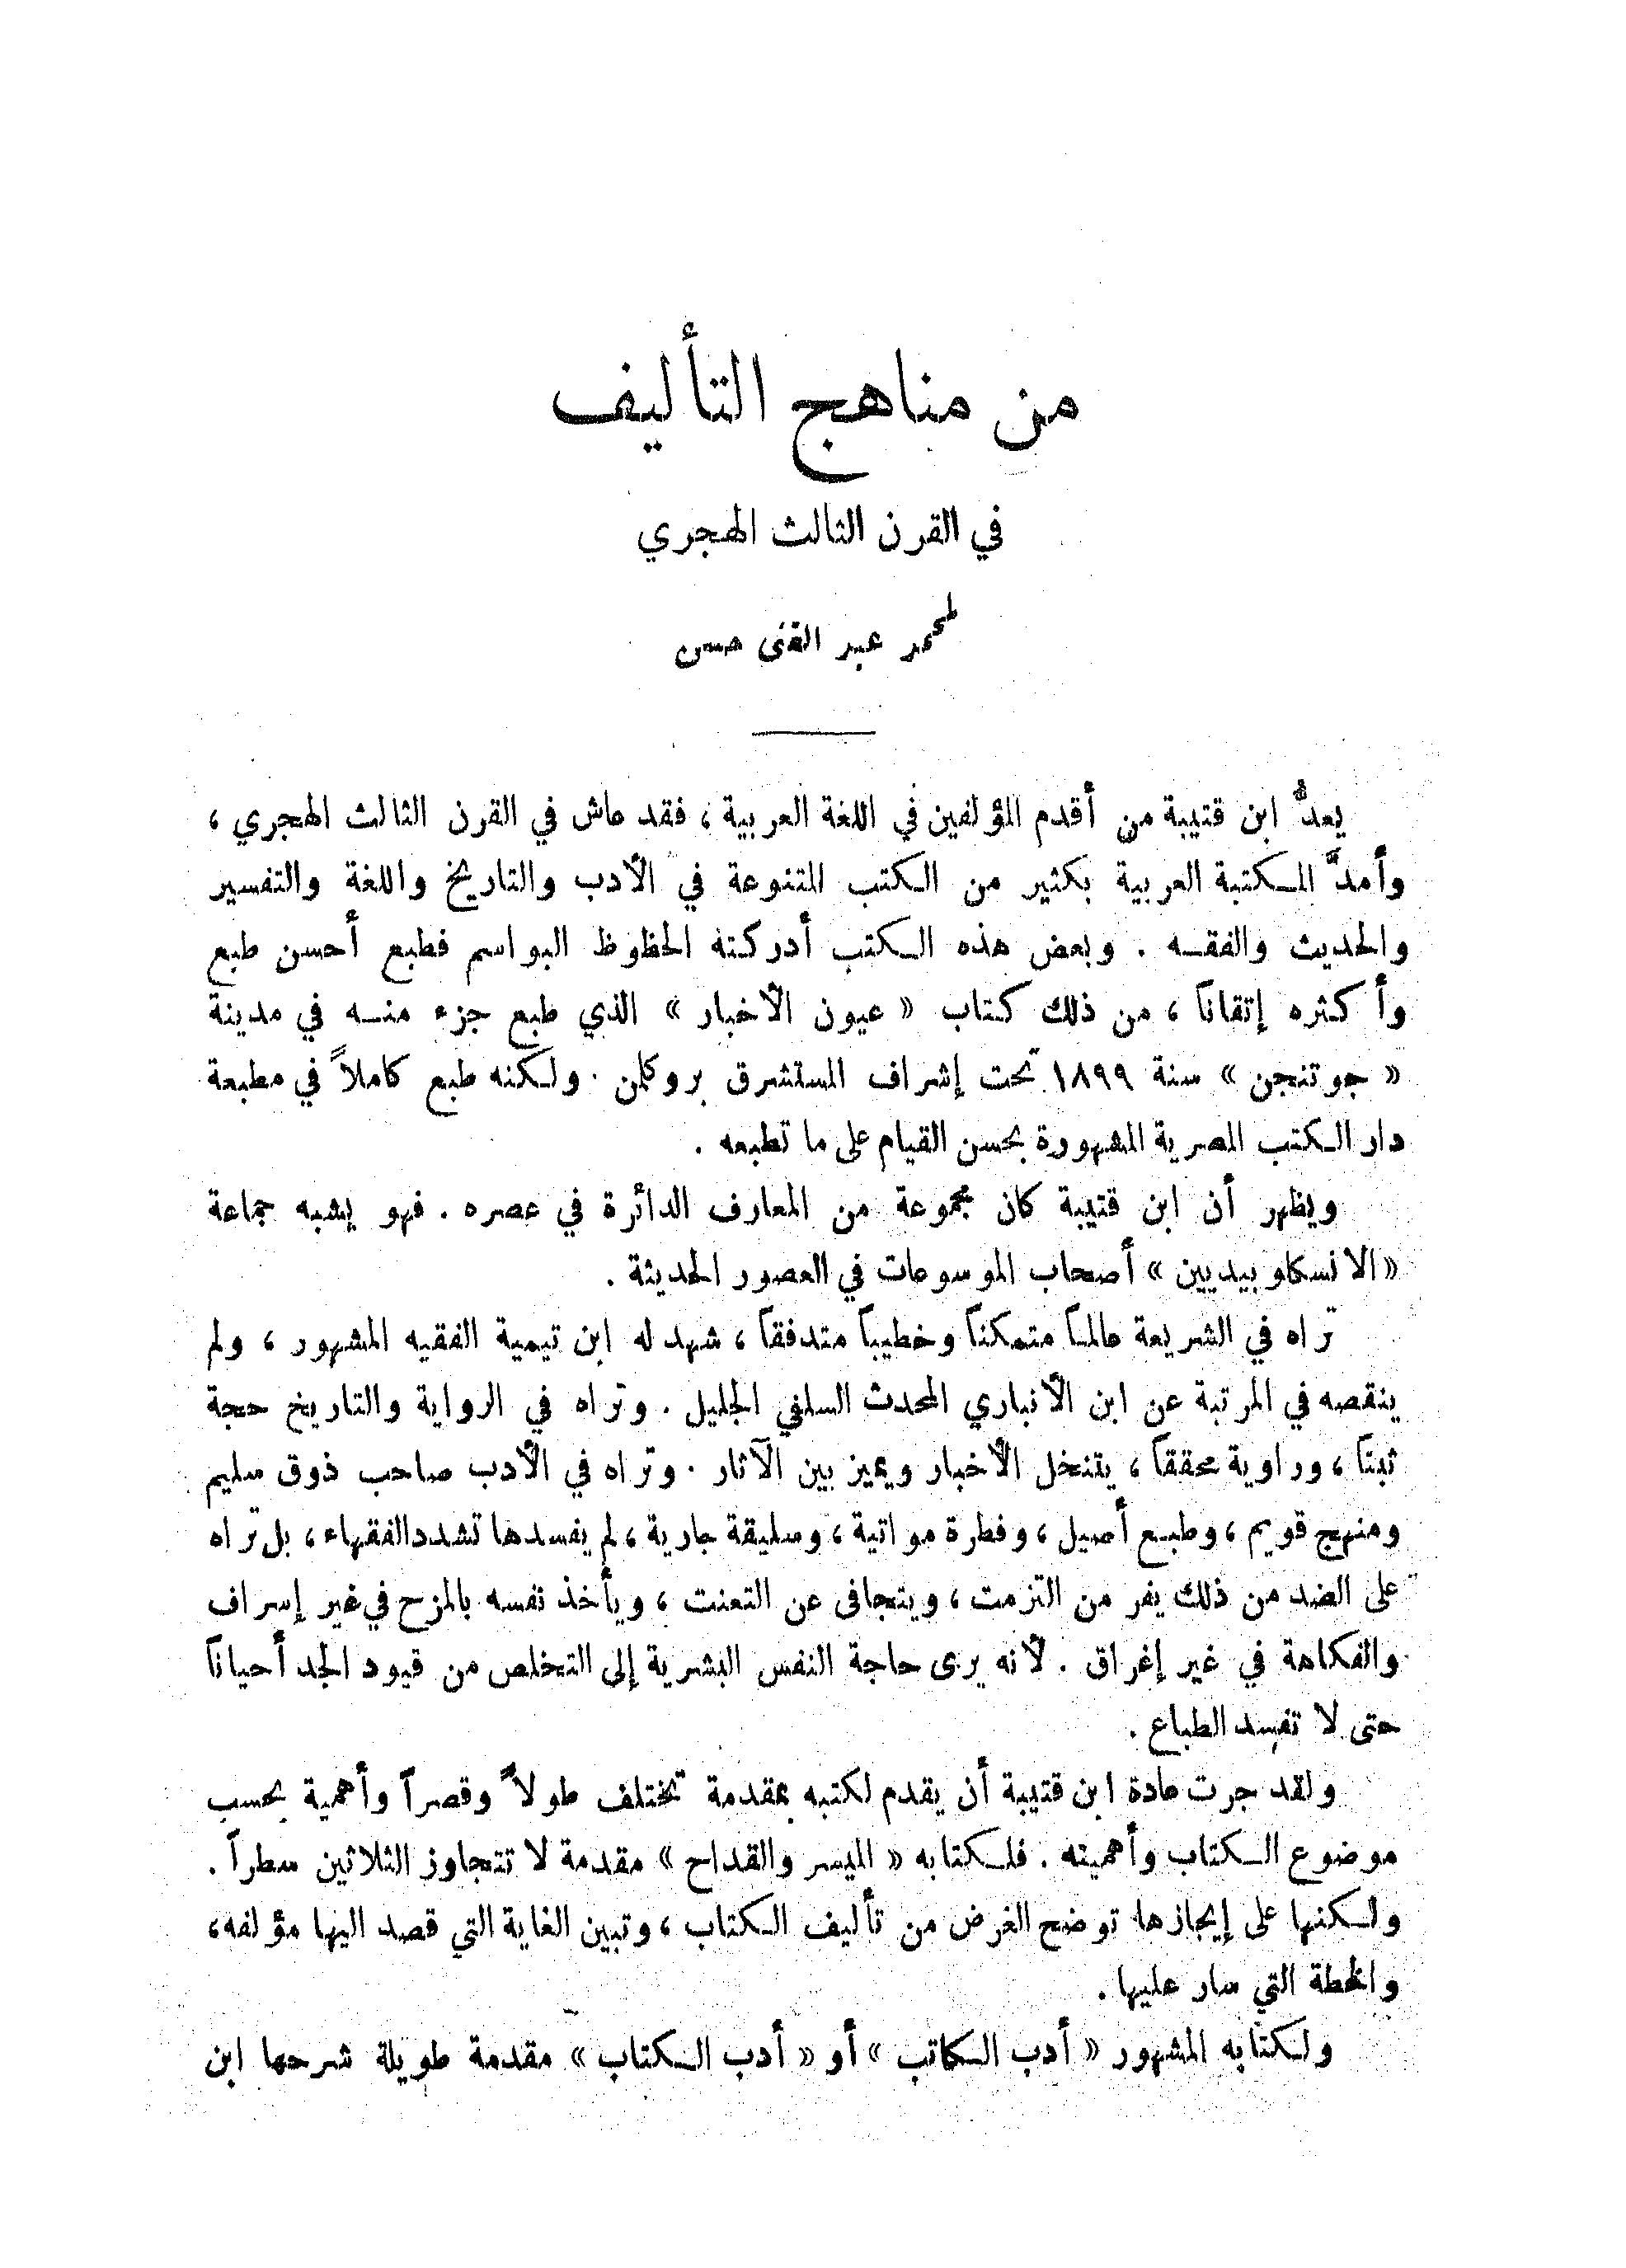 من مناهج التأليف
في القرن الثالث الهجري
لمحمد عبد الغنى حسن
يعدُّ ابن قتيبة من أقدم المؤلفين في اللغة العربية ، فقد عاش في القرن الثالث الهجري ،
وأمدَّ المكتبة العربية بكثير من الكتب المتنوعة في الأدب والتاريخ واللغة والتفسير
والحديث والفقه . وبعض هذه الكتب أدركته الحظوظ البواسم فطبع أحسن طبع
وأكثره إتقاناً ، من ذلك كتاب « عيون الأخبار » الذي طبع جزء منه في مدينة
« جوتنجن » سنة ١٨٩٩ تحت إشراف المستشرق بروكلمن . ولكنه طبع كاملاً في مطبعة
دار الكتب المصرية المشهورة بحسن القيام على ما تطبعه .
ويظهر أن ابن قتيبة كان مجموعة من المعارف الدائرة في عصره . فهو يشبه جماعة
« الانسكلوبيديين » أصحاب الموسوعات في العصور الحديثة .
تراه في الشريعة عالماً متمكناً وخطيباً متدفقاً ، شهد له ابن تيمية الفقيه المشهور ، ولم
ينقصه في المرتبة عن ابن الأنباري المحدث السلفي الجليل . وتراه في الرواية والتاريخ حجة
ثبتاً ، وراوية محققاً ، يتنخل الأخبار ويميز بين الآثار . وتراه في الأدب صاحب ذوق سليم
ومنهج قويم ، وطبع أصيل ، وفطرة مواتية ، وسليقة جارية ، لم يفسدها تشدد الفقهاء ، بل تراه
على الضد من ذلك يفر من التزمت ، ويتجافى عن التعنت ، ويأخذ نفسه بالمزح في غير إسراف
والفكاهة في غير إغراق . لأنه يرى حاجة النفس البشرية إلى التخلص من قيود الجد أحياناً
حتى لا تفسد الطباع .
ولقد جرت عادة ابن قتيبة أن يقدم لكتبه بمقدمة تختلف طولاً وقصراً وأهمية بحسب
موضوع الكتاب وأهميته . فلكتابه « الميسر والقداح » مقدمة لا تتجاوز الثلاثين سطراً .
ولكنها على إيجازها توضح الغرض من تأليف الكتاب ، وتبين الغاية التي قصد اليها مؤلفه ،
والخطة التي سار عليها .
ولكتابه المشهور « أدب الكاتب » أو « أدب الكتاب » مقدمة طويلة شرحها ابن